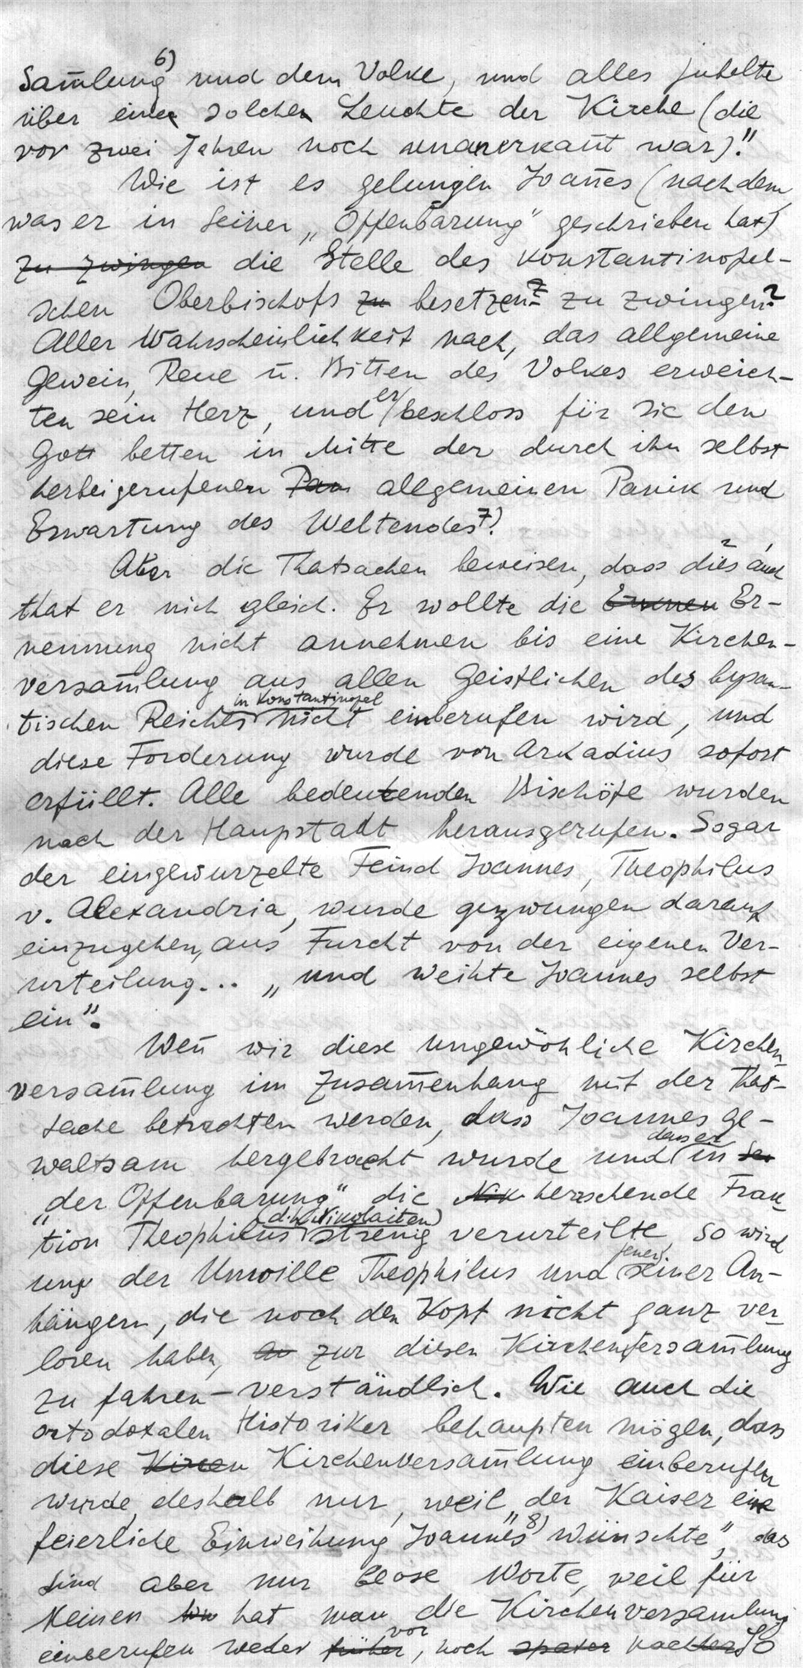 Sam̄lung⁶⁾ und dem Volke, und alles jubelte
über einer solchen Leuchte der Kirche (die
vor zwei Jahren noch unanerkan̄t war)."
Wie ist es gelungen Joan̄es (nach dem,
was er in seiner „Offenbarung" geschrieben hat)
zu zwingen die Stelle des Konstantinopel-
schen Oberbischofs zu besetzen? zu zwingen?
Aller Wahrscheinlichkeit nach, das allgemeine
Gewein, Reue u. Bitten des Volkes erweich-
ten sein Herz, und er beschloss für sie den
Gott betten in Mitte der durch ihn selbst
herbeigerufenen Pan allgemeinen Panik und
Erwartung des Weltendes⁷⁾.
Aber die Thatsachen beweisen, dass dies auch
that er nich gleich. Er wollte die Ernnen Er-
nennung nicht annehmen bis eine Kirchen-
versam̄lung aus allen Geistlichen des bysan-
tischen Reichs in Konstantinopel nicht einberufen wird, und
diese Forderung wurde von Arkadius sofort
erfüllt. Alle bedeutenden Bischöfe wurden
nach der Haupstadt herausgerufen. Sogar
der eingewurzelte Feind Joannes, Theophilus
v. Alexandria, wurde gezwungen darauf
einzugehen, aus Furcht von der eigenen Ver-
urteilung... „und weihte Joannes selbst
ein".
Wen̄ wir diese ungewöhnliche Kirchen-
versam̄lung im Zusam̄enhang mit der That-
sache betrachten werden, dass Joannes ge-
waltsam hergebracht wurde und dass er in
„der Offenbarung" die Nik herrschende Frak-
tion Theophilus (d.h. Nikolaiten) streng verurteilte, so wird
uns der Unwille Theophilus und jener seiner An-
hängern, die noch den Kopf nicht ganz ver-
loren haben, zur diesen Kirchenversam̄lung
zu fahren – verständlich. Wie auch die
ortodoxalen Historiker behaupten mögen, dass
diese Kirchen Kirchenversam̄lung einberufen
wurde, deshalb nur, weil „der Kaiser eine
feierliche Einweihung Joannes⁸⁾ wünschte", das
sind aber nur blose Worte, weil für
Keinen hat man die Kirchenversamlung
einberufen weder früher vor, noch später nachher. So